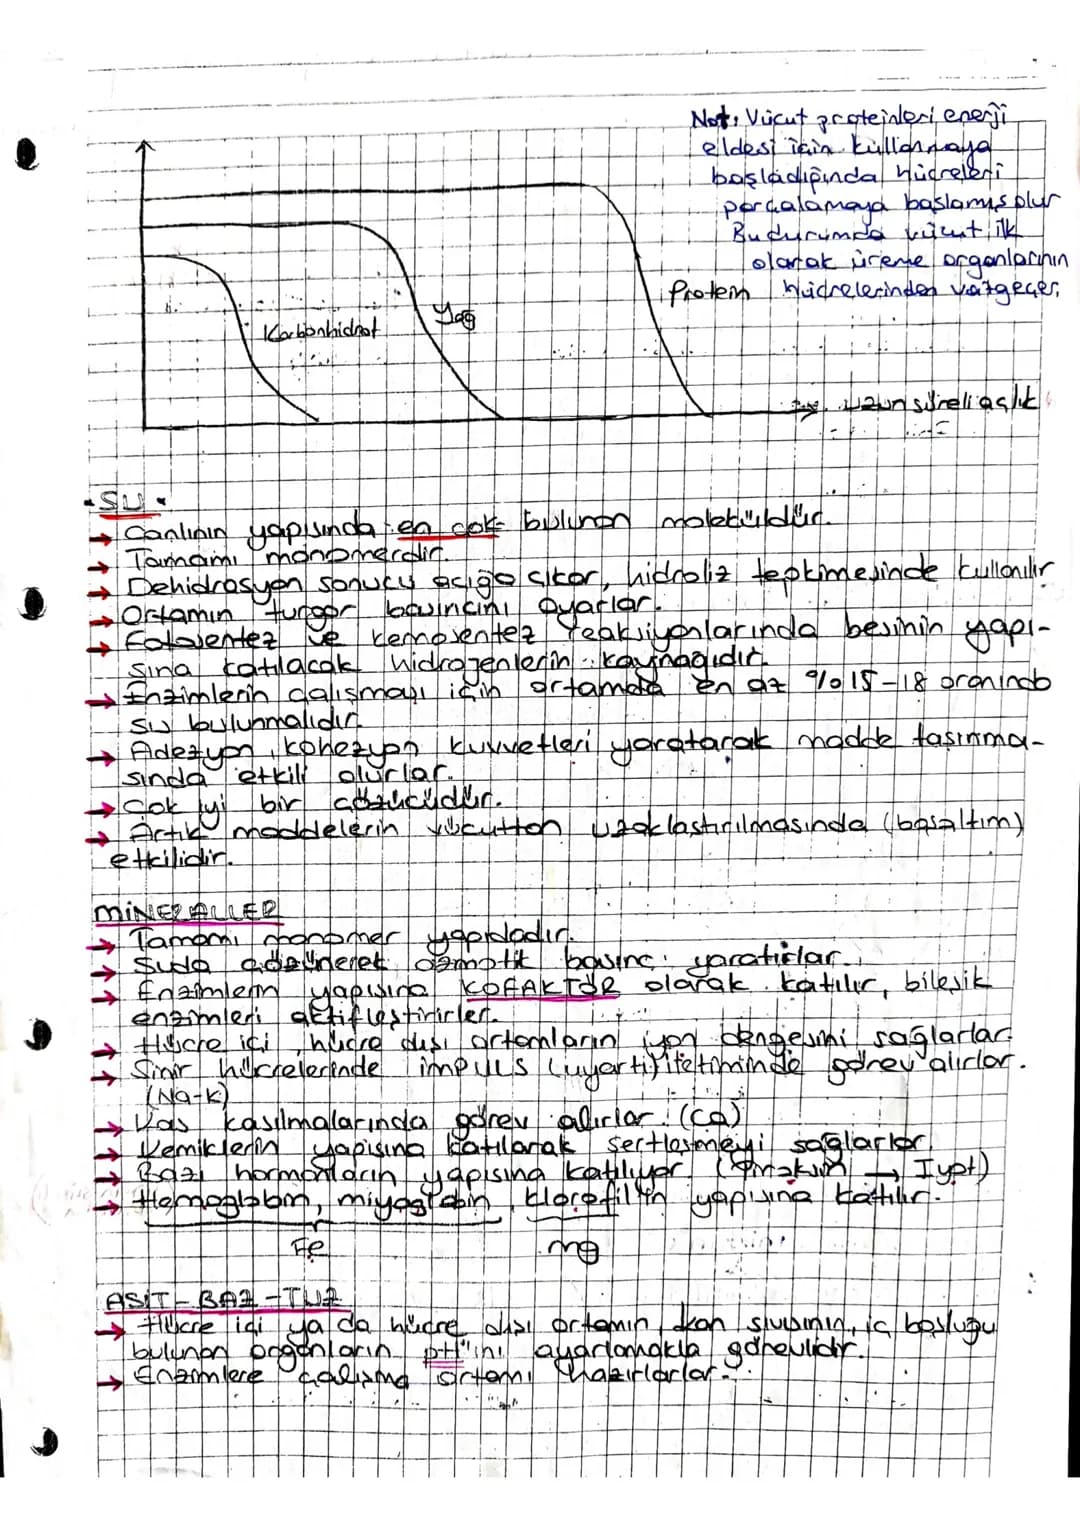 Not: Vücut proteinleri enerji
eldesi için kullanmaya
başladığında hücreleri
parçalamaya başlamış olur
Bu durumda vücut ilk
olarak üreme organlarının
hücrelerinden vazgeçer.
Protein
Yağ
Karbonhidrat
uzun süreli açlık
• SU •
→ Canlının yapısında en çok bulunan moleküldür.
→ Tamamı monomerdir.
→ Dehidrasyon sonucu açığa çıkar, hidroliz tepkimesinde kullanılır
→ Ortamın turgor basıncını ayarlar.
→ Fotosentez ve kemosentez reaksiyonlarında besinin yapı-
sına katılacak hidrojenlerin kaynağıdır.
→ Enzimlerin çalışmayı için ortamda en az %15-18 oranında
su bulunmalıdır.
→ Adezyon, kohezyon kuvvetleri yaratarak madde taşınma-
sında etkili olurlar.
→ Çok iyi bir çözücüdür.
→ Artık maddelerin vücuttan uzaklaştırılmasında (boşaltım)
etkilidir.
MİNERALLER
→ Tamamı monomer yapıdadır.
→ Suda çözünerek ozmotik basınç yaratırlar.
→ Enzimlerin yapısına KOFAKTÖR olarak katılır, bileşik
enzimleri aktifleştirirler.
→ Hücre içi, hücre dışı ortamların iyon dengesini sağlarlar.
→ Sinir hücrelerinde impuls (uyartı) iletiminde görev alırlar.
(Na-K)
→ Kas kasılmalarında görev alırlar. (Ca)
→ Kemiklerin yapısına katılarak sertleşmeyi sağlarlar.
→ Bazı hormonların yapısına katılıyor. (Tiroksin → İyot)
→ Hemoglobin, miyoglobin, klorofilin yapısına katılır.
Fe mg
ASİT-BAZ-TUZ
→ Hücre içi ya da hücre dışı ortamın, kan sıvısının, iç boşluğu
bulunan organların pH'ını ayarlamakla görevlidir.
→ Enzimlere çalışma ortamı hazırlarlar.